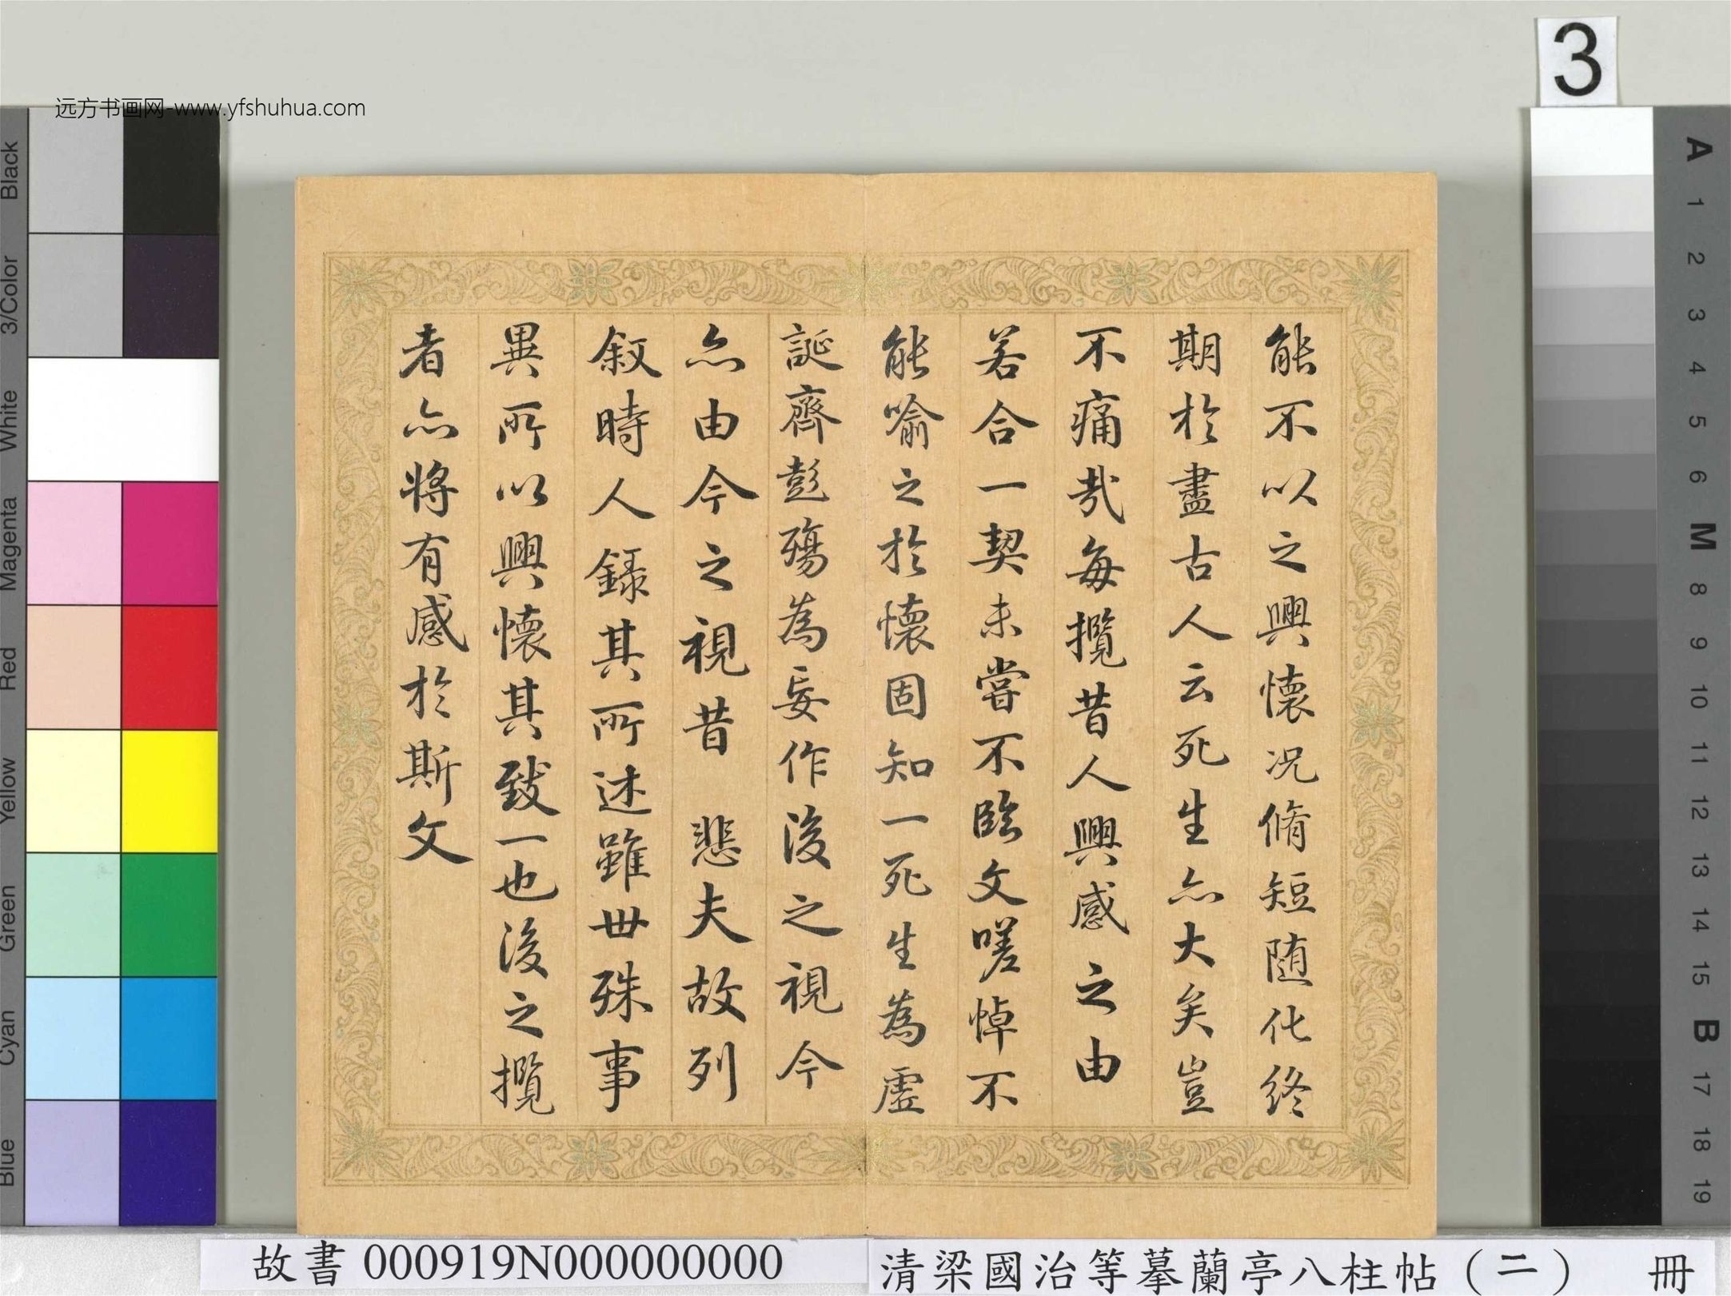 远方书画网-www.yfshuhua.com
3
能不以之興懷况脩短随化終
期於盡古人云死生亦大矣豈
不痛哉每攬昔人興感之由
若合一契未嘗不臨文嗟悼不
能喻之於懷固知一死生為虚
誕齊彭殤為妄作後之視今
亦由今之視昔 悲夫故列
叙時人録其所述雖世殊事
異所以興懷其致一也後之攬
者亦将有感於斯文
Black
3/Color
White
Magenta
Red
Yellow
Green
Cyan
Blue
A
1
2
3
4
5
6
M
8
9
10
11
12
13
14
15
B
17
18
19
故書 000919N000000000
清梁國治等摹蘭亭八柱帖(二) 冊